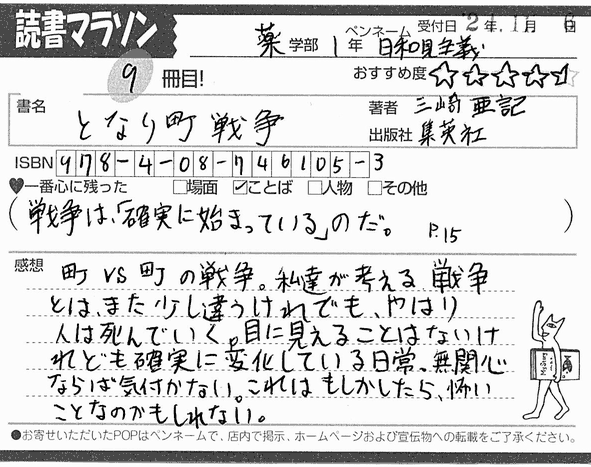 読書マラソン
薬 学部 1 年 ペンネーム 日和見主義 受付日 24年 11月 6日
9 冊目! おすすめ度 ☆☆☆☆☆
書名 となり町戦争 著者 三崎亜記
出版社 集英社
ISBN 978-4-08-746105-3
♥一番心に残った □場面 ☑ことば □人物 □その他
(戦争は、「確実に始まっている」のだ。 P.15)
感想 町 vs 町の戦争。私達が考える戦争
とは、また少し違うけれでも、やはり
人は死んでいく。目に見えることはないけ
れども確実に変化している日常。無関心
ならば気付かない。これはもしかしたら、怖い
ことなのかもしれない。
●お寄せいただいたPOPはペンネームで、店内で掲示、ホームページおよび宣伝物への転載をご了承ください。